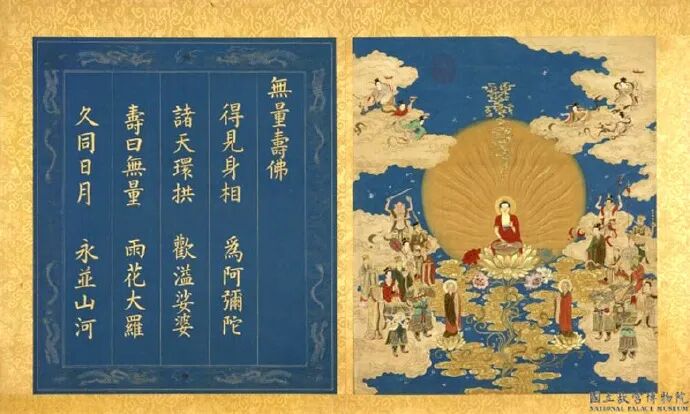 無量壽佛
得見身相 爲阿彌陀
諸天環拱 歡溢娑婆
壽曰無量 雨花大羅
久同日月 永並山河
國立故宮博物院
NATIONAL PALACE MUSEUM